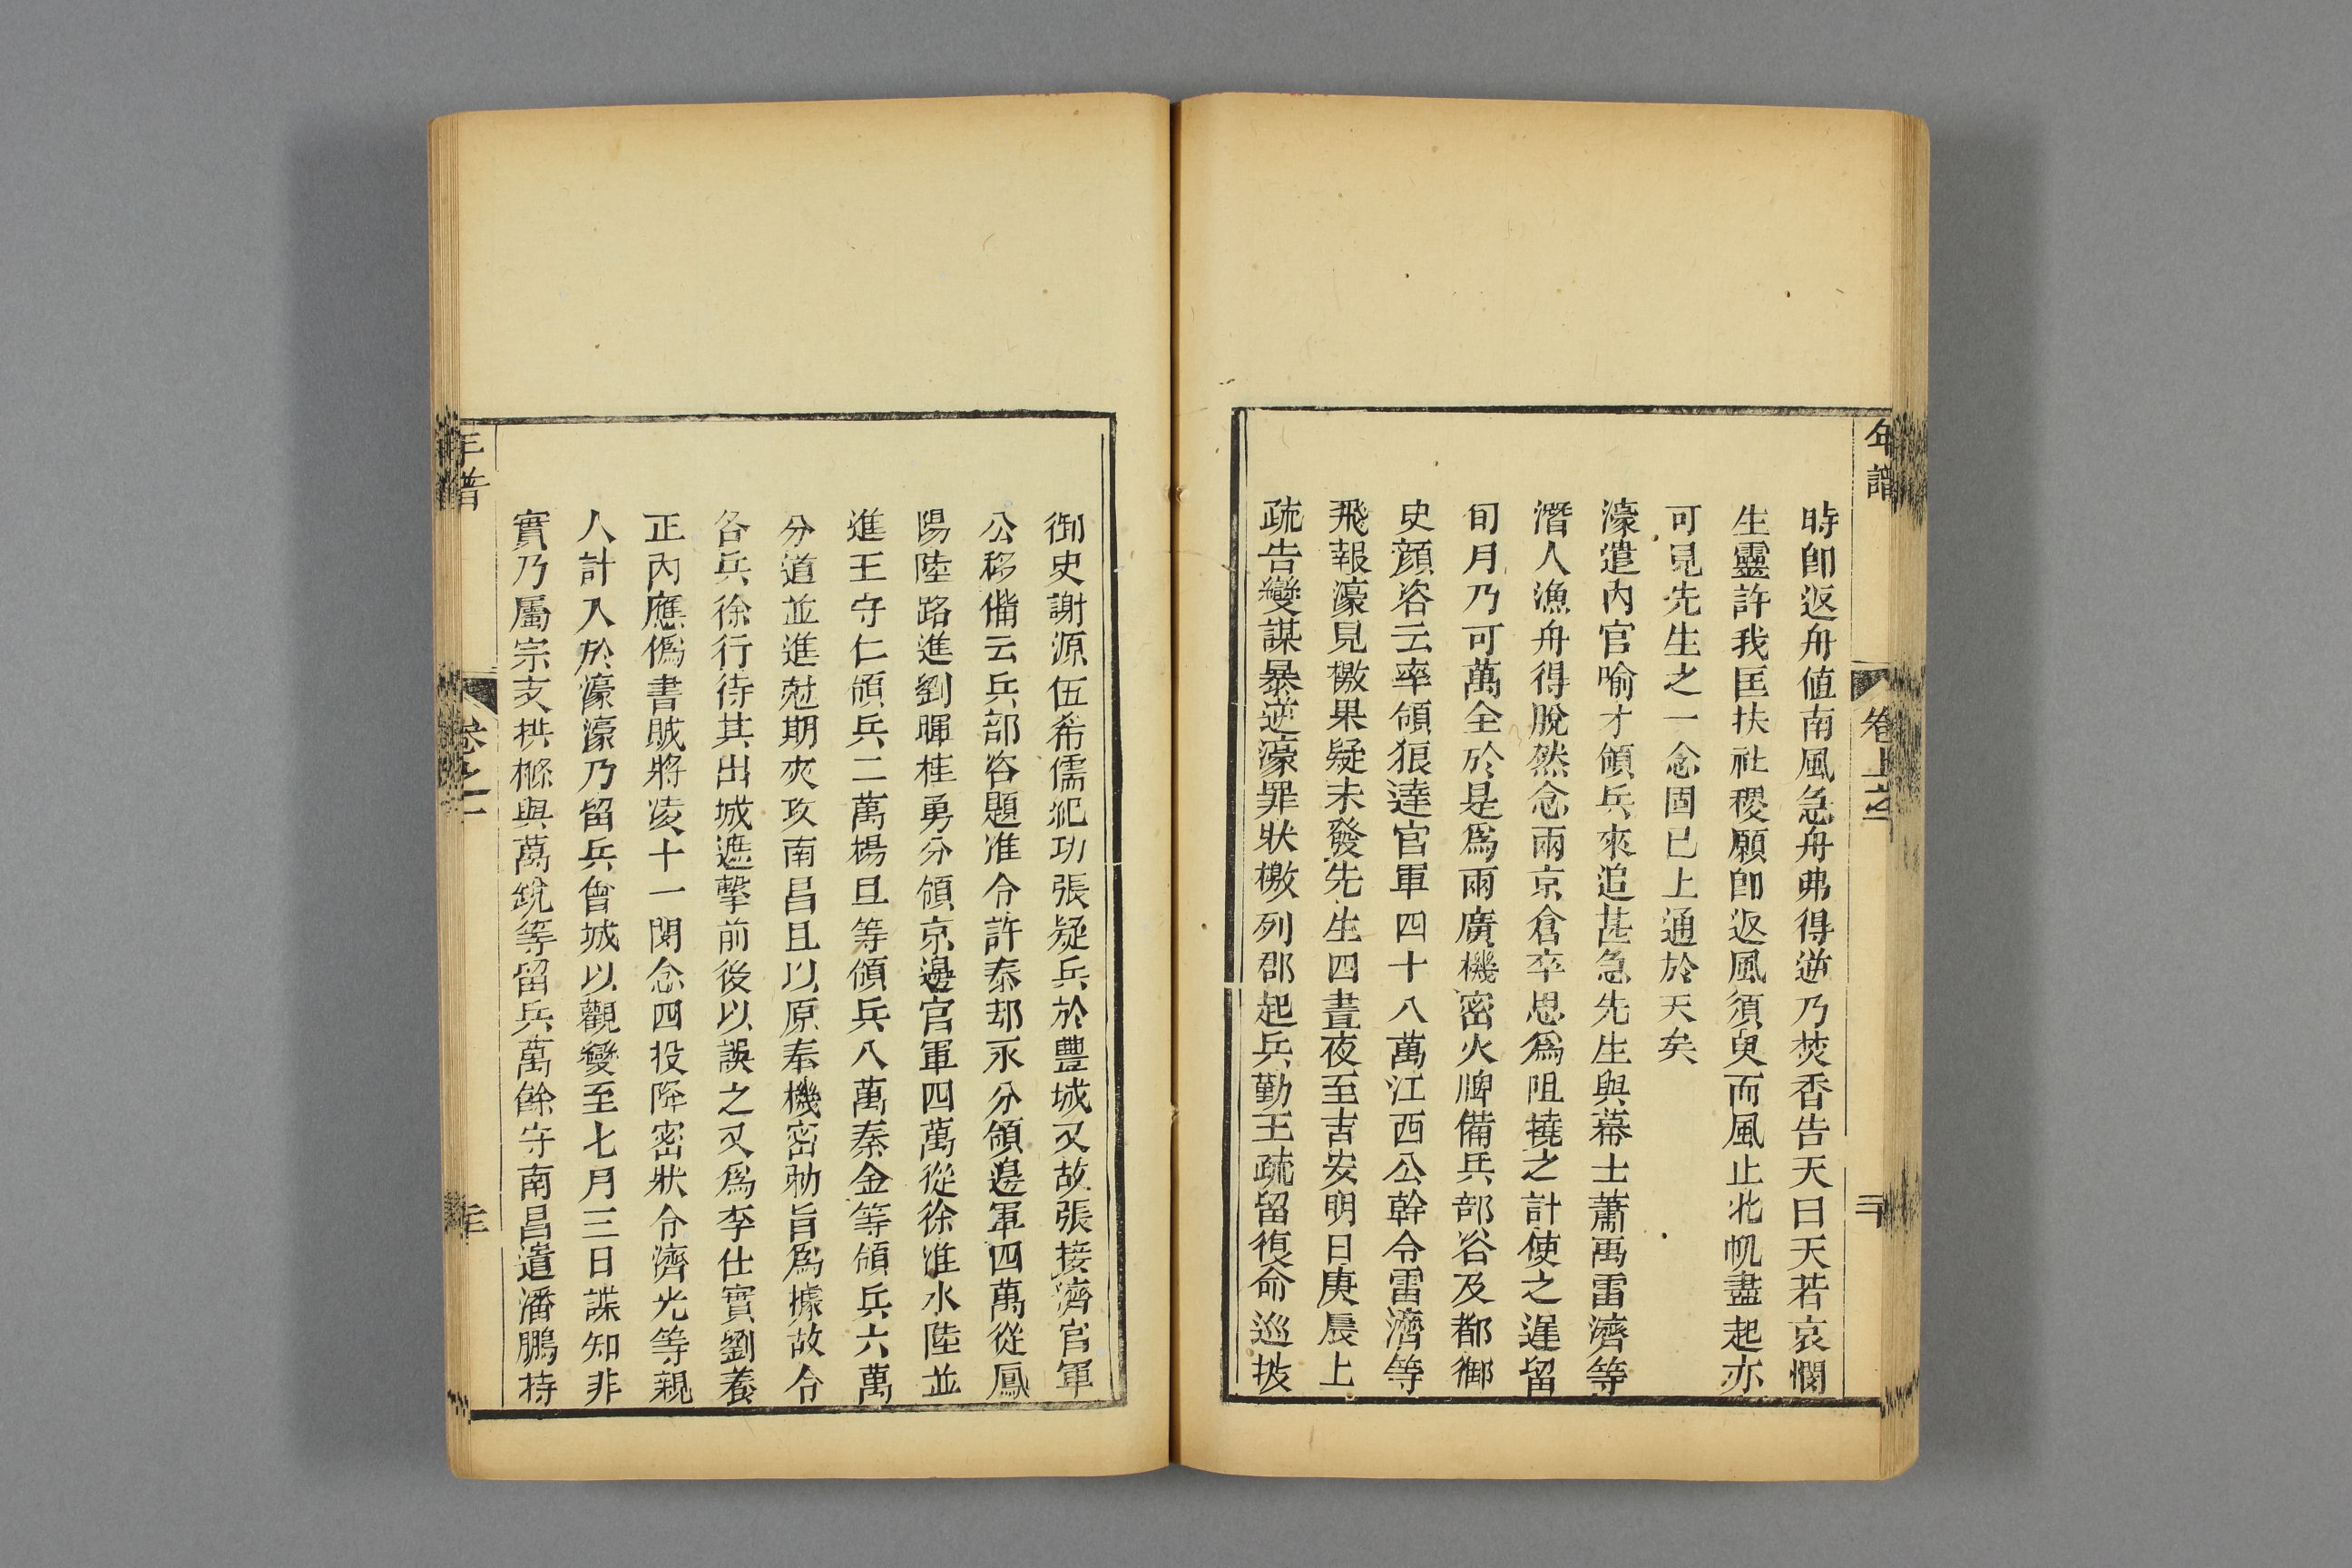 年譜
卷上之二
時卽返舟値南風急舟弗得逆乃焚香告天曰天若哀憫
生靈許我匡扶社稷願卽返風須臾而風止北帆盡起亦
可見先生之一念固已上通於天矣
濠遣內官喻才領兵來追甚急先生與幕士蕭禹雷濟等
潛入漁舟得脫然念兩京倉卒思爲阻撓之計使之遲留
旬月乃可萬全於是爲兩廣機密火牌備兵部咨及都御
史顔咨云率領狼達官軍四十八萬江西公幹令雷濟等
飛報濠見檄果疑未發先生四晝夜至吉安明日庚辰上
疏告變謀暴逆濠罪狀檄列郡起兵勤王疏留復命巡按
御史謝源伍希儒紀功張疑兵於豐城又故張接濟官軍
公移備云兵部咨題准令許泰却永分領邊軍四萬從鳳
陽陸路進劉暉桂勇分領京邊官軍四萬從徐淮水陸並
進王守仁領兵二萬楊旦等領兵八萬秦金等領兵六萬
分道並進尅期夾攻南昌且以原奉機密勑旨爲據故令
各兵徐行待其出城遮擊前後以誤之又爲李仕實劉養
正內應僞書賊將凌十一閔念四投降密狀令濟光等親
人計入於濠濠乃留兵會城以觀變至七月三日諜知非
實乃屬宗支栱樤與萬銳等留兵萬餘守南昌遣潘鵬持